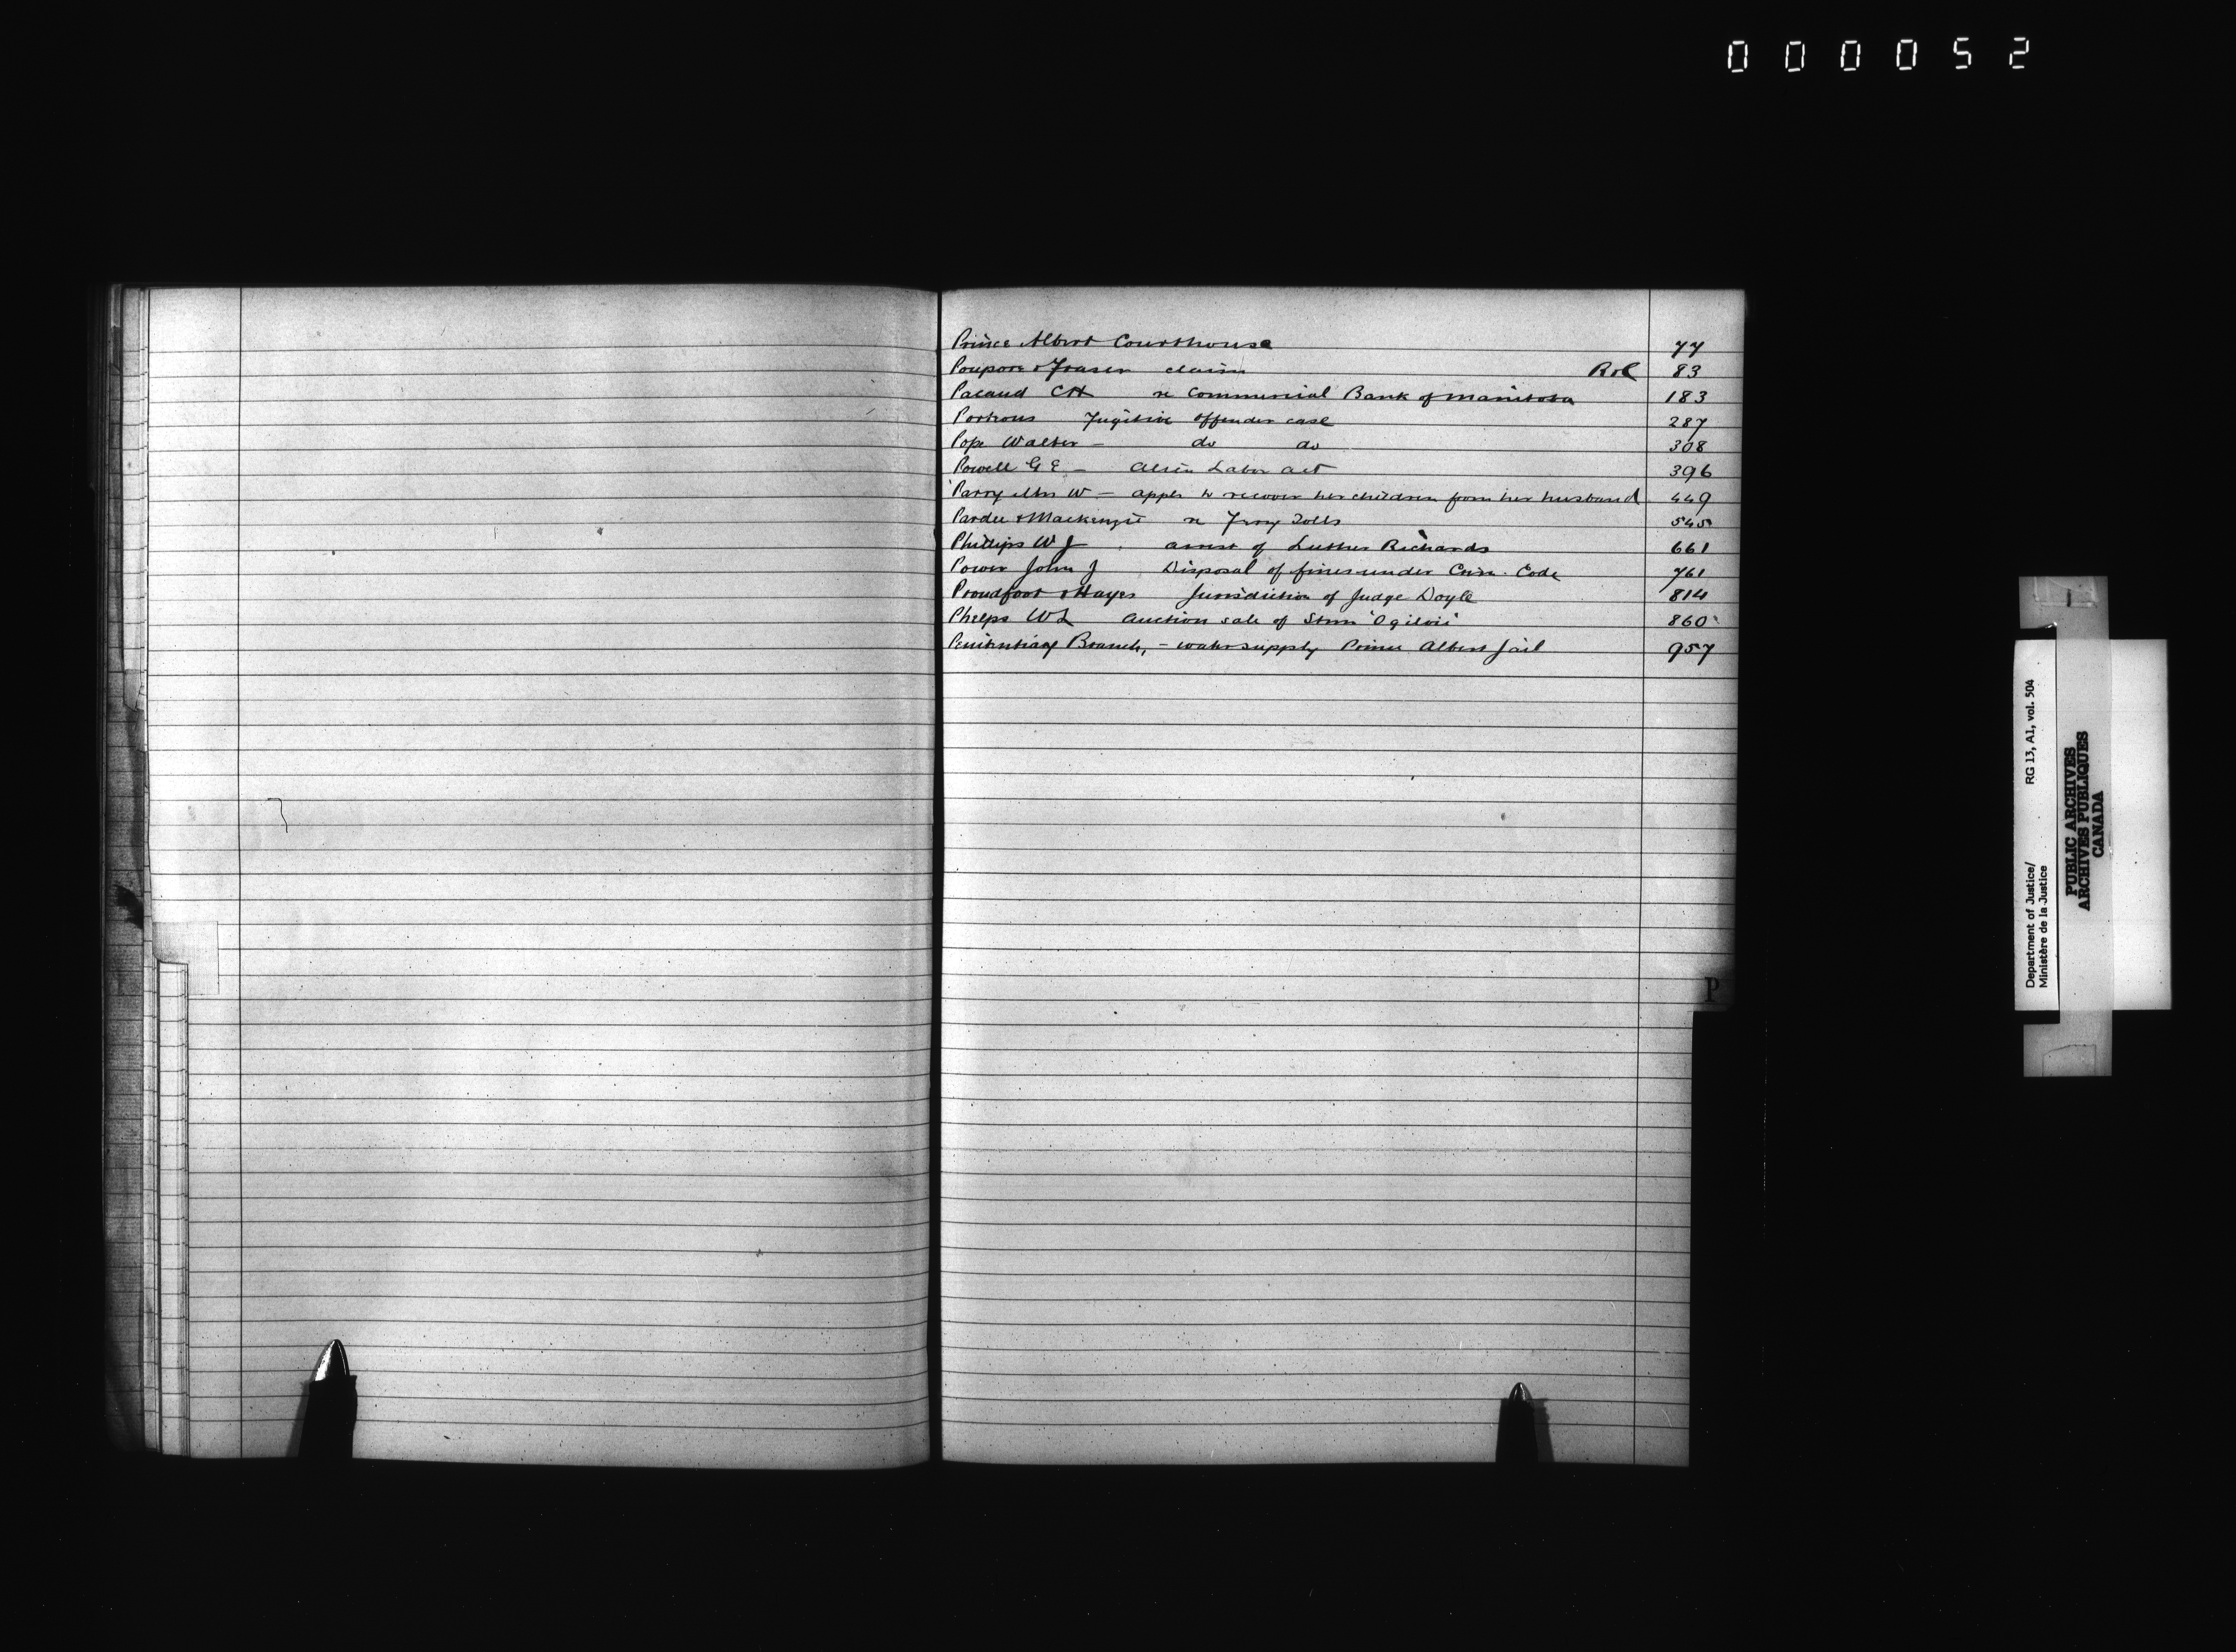 000052
Prince Albert Courthouse 77
Poupore & Fraser claim R&C 83
Pacaud CH re Commercial Bank of Manitoba 183
Porteous Fugitive Offender case 287
Pope Walter - do do 308
Powell G E - Alien Labor Act 396
Parry Mrs W - appln to recover her children from her husband 449
Pardee & Mackenzie re Ferry Tolls 545
Phillips W J arrest of Luther Richards 661
Power John J Disposal of fines under Crim. Code 761
Proudfoot & Hayes Jurisdiction of Judge Doyle 814
Phelps W L Auction sale of Stmr "Ogilvie" 860
Penitentiary Branch, - water supply Prince Albert Jail 957
P
Department of Justice/ RG 13, A1, vol. 504
Ministère de la Justice
PUBLIC ARCHIVES
ARCHIVES PUBLIQUES
CANADA